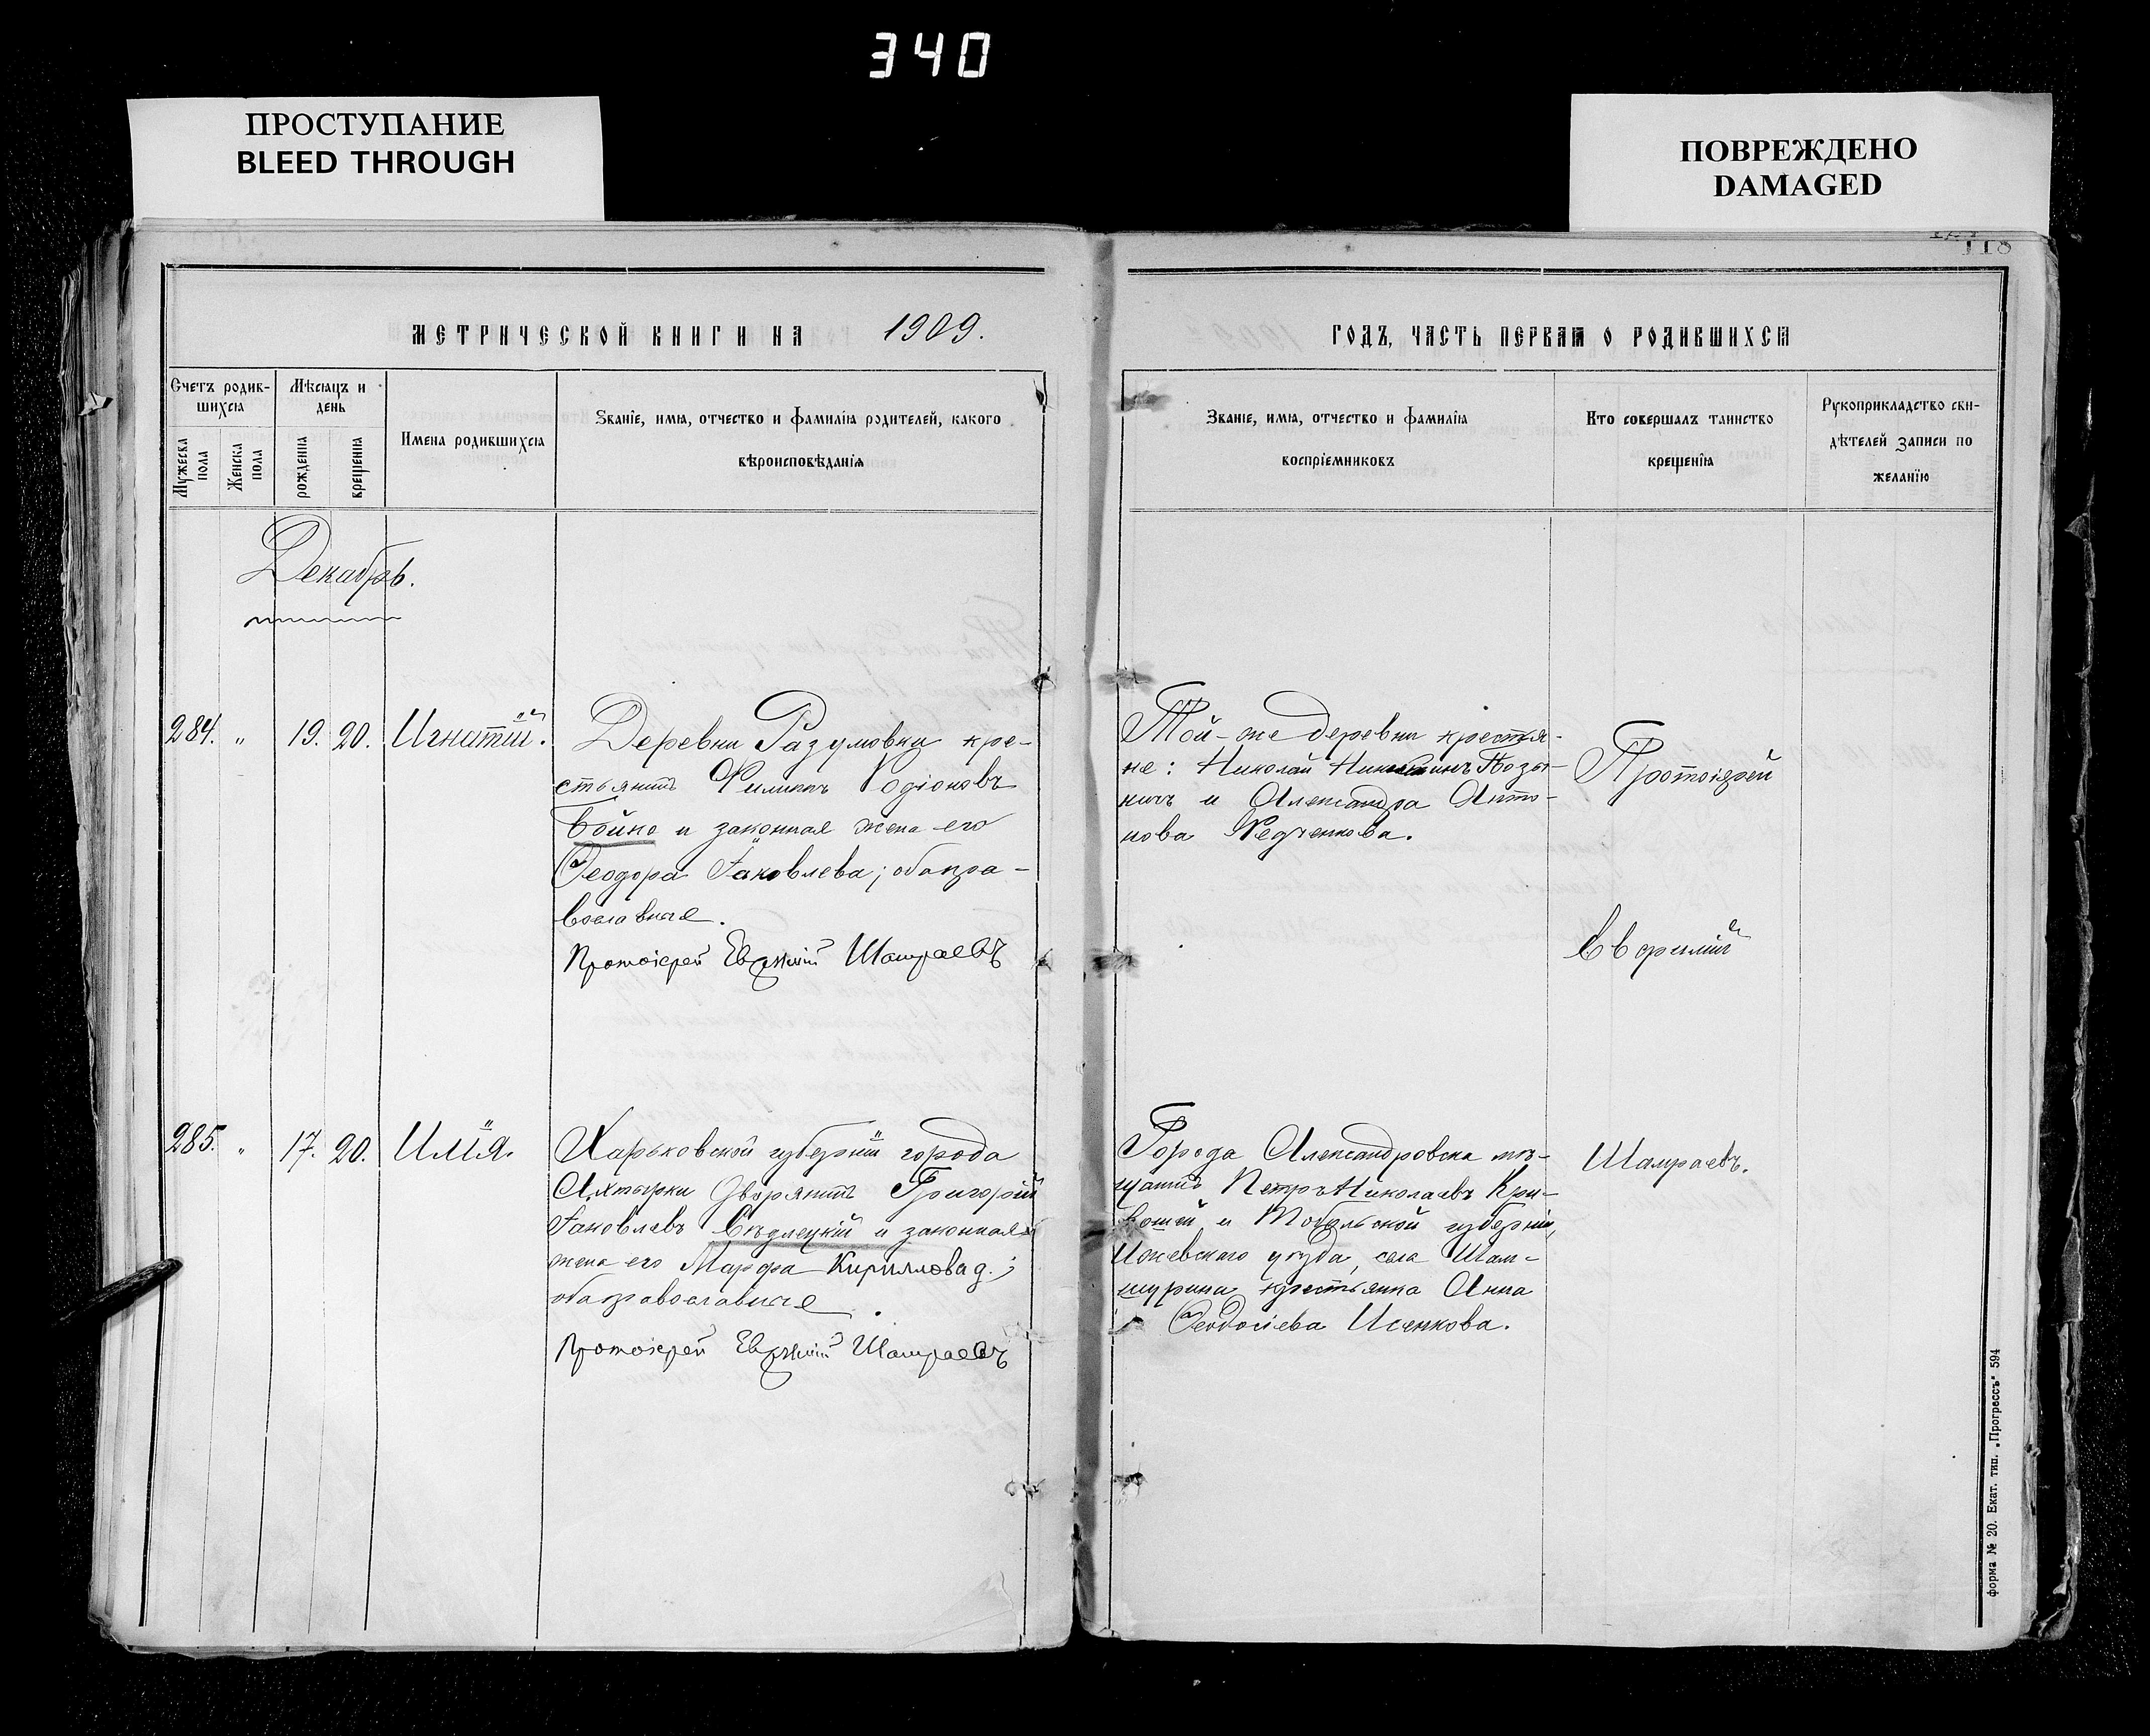 340
ПРОСТУПАНИЕ
BLEED THROUGH
ПОВРЕЖДЕНО
DAMAGED
118
МЕТРИЧЕСКОЙ КНИГИ НА 1909.
Счетъ родив-
шихся
Мужеска пола
Женска пола
Мѣсяцъ и
день
рожденія
крещенія
Имена родившихся
Званіе, имя, отчество и фамилія родителей, какого
вѣроисповѣданія
Декабрь.
284. „ 19. 20. Игнатій.
Деревни Разумовки кре-
стьянинъ Филиппъ Родіоновъ
Бойко и законная жена его
Ѳеодора Іаковлева; оба пра-
вославные.
Протоіерей Евѳимій Шамраевъ
285. „ 17. 20. Илія.
Харьковской губерніи города
Ахтырки дворянинъ Григорій
Іаковлевъ Сѣдлецкій и законная
жена его Марфа Кириллова д.;
оба православные.
Протоіерей Евѳимій Шамраевъ
ГОДЪ, ЧАСТЬ ПЕРВАЯ О РОДИВШИХСЯ
Званіе, имя, отчество и фамилія
воспріемниковъ
Кто совершалъ таинство
крещенія
Рукоприкладство сви-
дѣтелей записи по
желанію
Той-же деревни крестья-
не: Николай
и Александра Анто-
нова Федченкова.
Протоіерей
Евфимій
Города Александровска мѣ-
щанинъ Петръ Николаевъ Кри-
вошей и Тобольской губерніи,
уѣзда, села Шам-
шурина крестьянка Анна
Ѳеодосіева Исенкова.
Шамраевъ.
форма № 20. Екат. тип. „Прогрессъ" 594